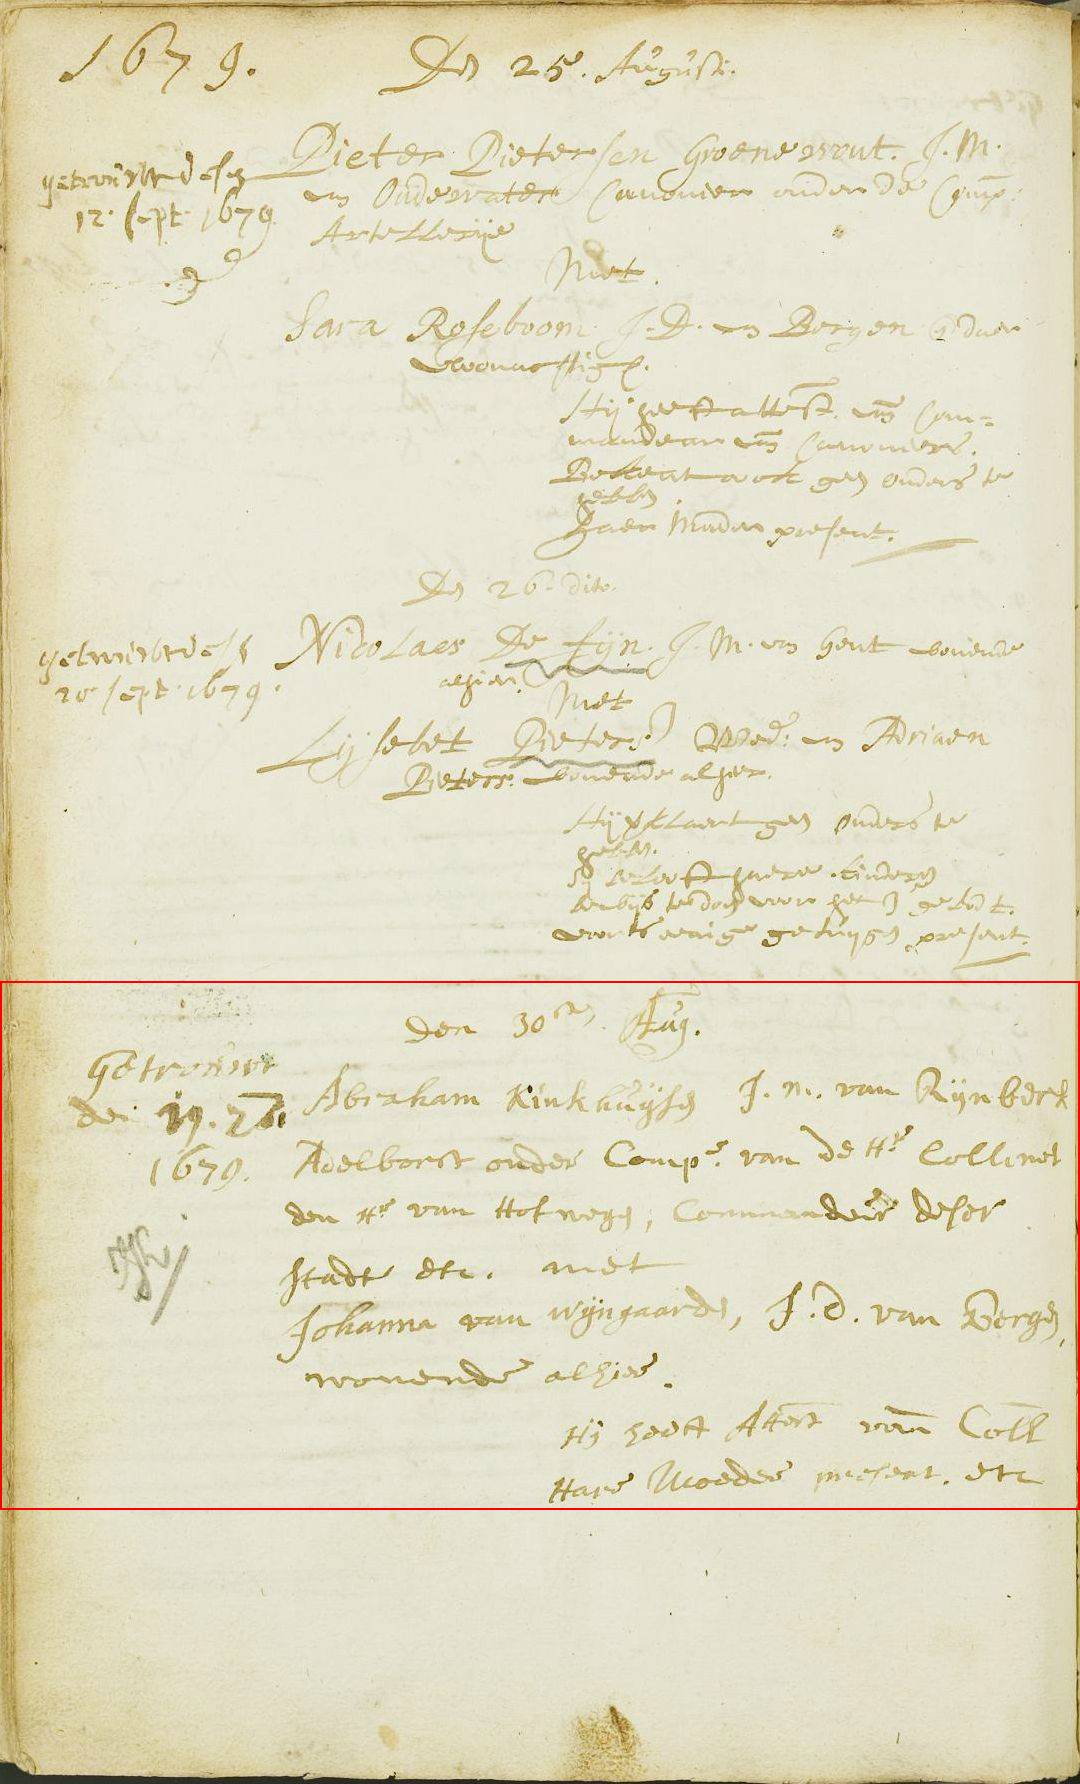 1679.
Den 25e. Augusti.
getrouwt desen
12. sept. 1679
Pieter Pietersen Groenewout. J. M.
van Oudewater Canonier onder de Comp.
Artellerije
Met.
Sara Roseboom. J. D. van Bergen daer
woonachtig.
Hij heeft attest. van Com=
mandeur van Canoniers.
Bekent ook gen ouders te
hebben.
Haer Moeder present.
Den 26. dito.
getrouwt desen
20. sept. 1679.
Nicolaes De Fijn. J. M. van Gent wonende
alhier.
Met
Lijsebet Pieters. Wed: van Adriaen
Pieters. wonende alhier.
Hij verklaert gen ouders te
hebben.
Sij belooft haere kinderen
bewijs te doen voor het 3 gebodt.
voorts eenige getuygen present.
den 30en. Aug.
Getrouwt
den 19. 7b.
1679.
Abraham Kinkhuysen J. m. van Rijnberck
Adelborst onder Compe. van de Hr Collonel
den Hr van Hofwegen, Commandeur deser
Stadt etc. met
Johanna van Wijngaarden, J. d. van Bergen,
wonende alhier.
Hij heeft Attest van Coll
Hare Moeder present. etc